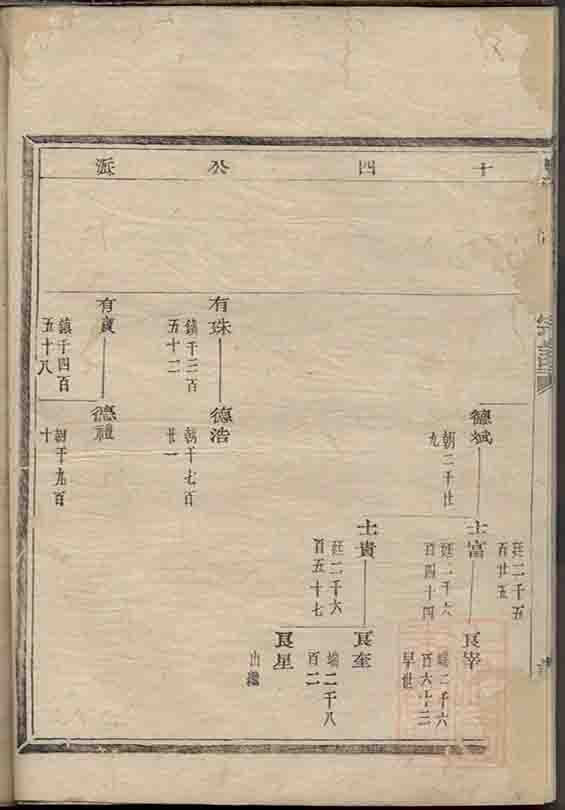 十四公派
廷二千五
百廿五
德斌
朝二千廿
九
士富
廷二千六
百四十四
良宰
端二千六
百六十三
早世
士貴
廷二千六
百五十七
良奎
端二千八
百二
良星
出繼
有珠
鎮千三百
五十二
德浩
朝千七百
廿一
有賓
鎮千四百
五十八
德禮
朝千九百
十